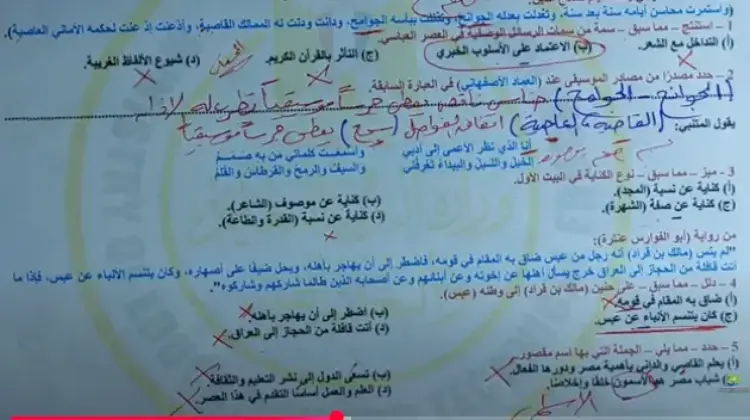 واستمرت محاسن أيامه سنة بعد سنة، وتعدلت بعدله الجوانح، وتذللت ببأسه الجوامح، ودانت ودنت له الممالك القاصية، وأذعنت إذ عنت لحكمه الأماني العاصية".
1 – استنتج – مما سبق – سمة من سمات الرسائل الوصفية في العصر العباسي.
(أ) التداخل مع الشعر. (ب) الاعتماد على الأسلوب الخبري (ج) التأثر بالقرآن الكريم. (د) شيوع الألفاظ الغريبة.
2 – حدد مصدرًا من مصادر الموسيقى عند (العماد الأصفهاني) في العبارة السابقة.
(الجوانح – الجوامح) جناس ناقص يعطي جرساً موسيقياً تطرب له الأذن
(القاصية، العاصية) اتفاقه الفواصل (سجع) يعطي جرساً موسيقياً
يقول المتنبي:
أنا الذي نظر الأعمى إلى أدبي وأسمعت كلماتي من به صَمَمُ
الخيل والليل والبيداءُ تعرفني والسيفُ والرمحُ والقرطاسُ والقلمُ
3 – ميز – مما سبق – نوع الكناية في البيت الأول.
(أ) كناية عن نسبة (المجد). (ب) كناية عن موصوف (الشاعر).
(ج) كناية عن صفة (الشهرة). (د) كناية عن نسبة (القدرة والطاعة).
من رواية (أبو الفوارس عنترة):
"لم ينس (مالك بن قراد) أنه رجل من عبس ضاق به المقام في قومه، فاضطر إلى أن يهاجر بأهله، ويحل ضيفًا على أصهاره، وكان يتنسم الأنباء عن عبس، فإذا ما
أتت قافلة من الحجاز إلى العراق خرج يسأل أهلها عن إخوته وعن أبنائهم وعن أصحابه الذين طالما شاركهم وشاركوه".
4 – دلل – مما سبق – على حنين (مالك بن قراد) إلى وطنه (عبس).
(أ) ضاق به المقام في قومه. (ب) اضطر إلى أن يهاجر بأهله.
(ج) كان يتنسم الأنباء عن عبس. (د) أتت قافلة من الحجاز إلى العراق.
5 – حدد – مما يلي – الجملة التي بها اسم مقصور.
(أ) يعلم القاصي والداني بأهمية مصر ودورها الفعال. (ب) تسعى الدول إلى نشر التعليم والثقافة.
شباب مصر هم الأسمون خلقًا وإخلاصًا. (د) العلم والعمل أساسا التقدم في هذا العصر.